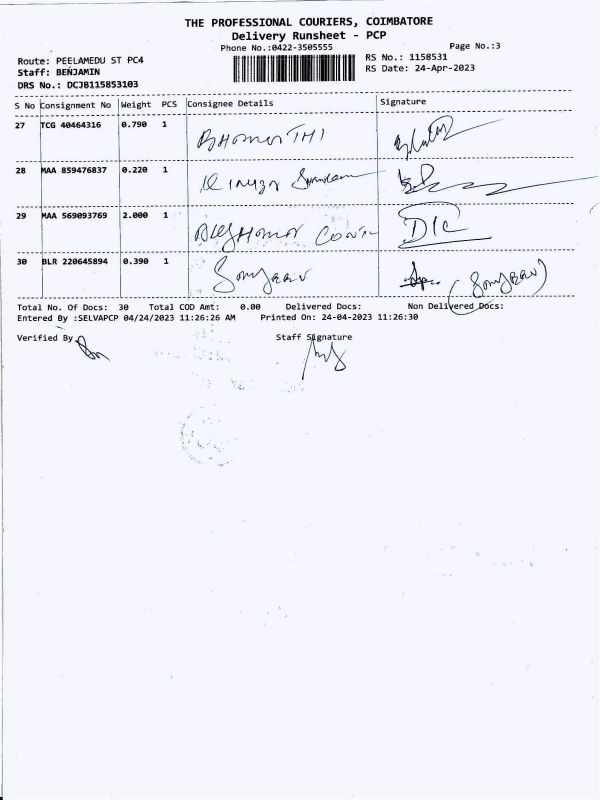 THE PROFESSIONAL COURIERS, COIMBATORE
Delivery Runsheet - PCP
Phone No.:0422-3505555
Page No.:3
Route: PEELAMEDU ST PC4
RS No.: 1158531
Staff: BENJAMIN
RS Date: 24-Apr-2023
DRS No.: DCJB115853103
S No Consignment No Weight PCS Consignee Details Signature
27 TCG 40464316 0.790 1
28 MAA 859476837 0.220 1
29 MAA 569093769 2.000 1 DIC
30 BLR 220645894 0.390 1
Total No. Of Docs: 30 Total COD Amt: 0.00 Delivered Docs: Non Delivered Docs:
Entered By :SELVAPCP 04/24/2023 11:26:26 AM Printed On: 24-04-2023 11:26:30
Verified By
Staff Signature